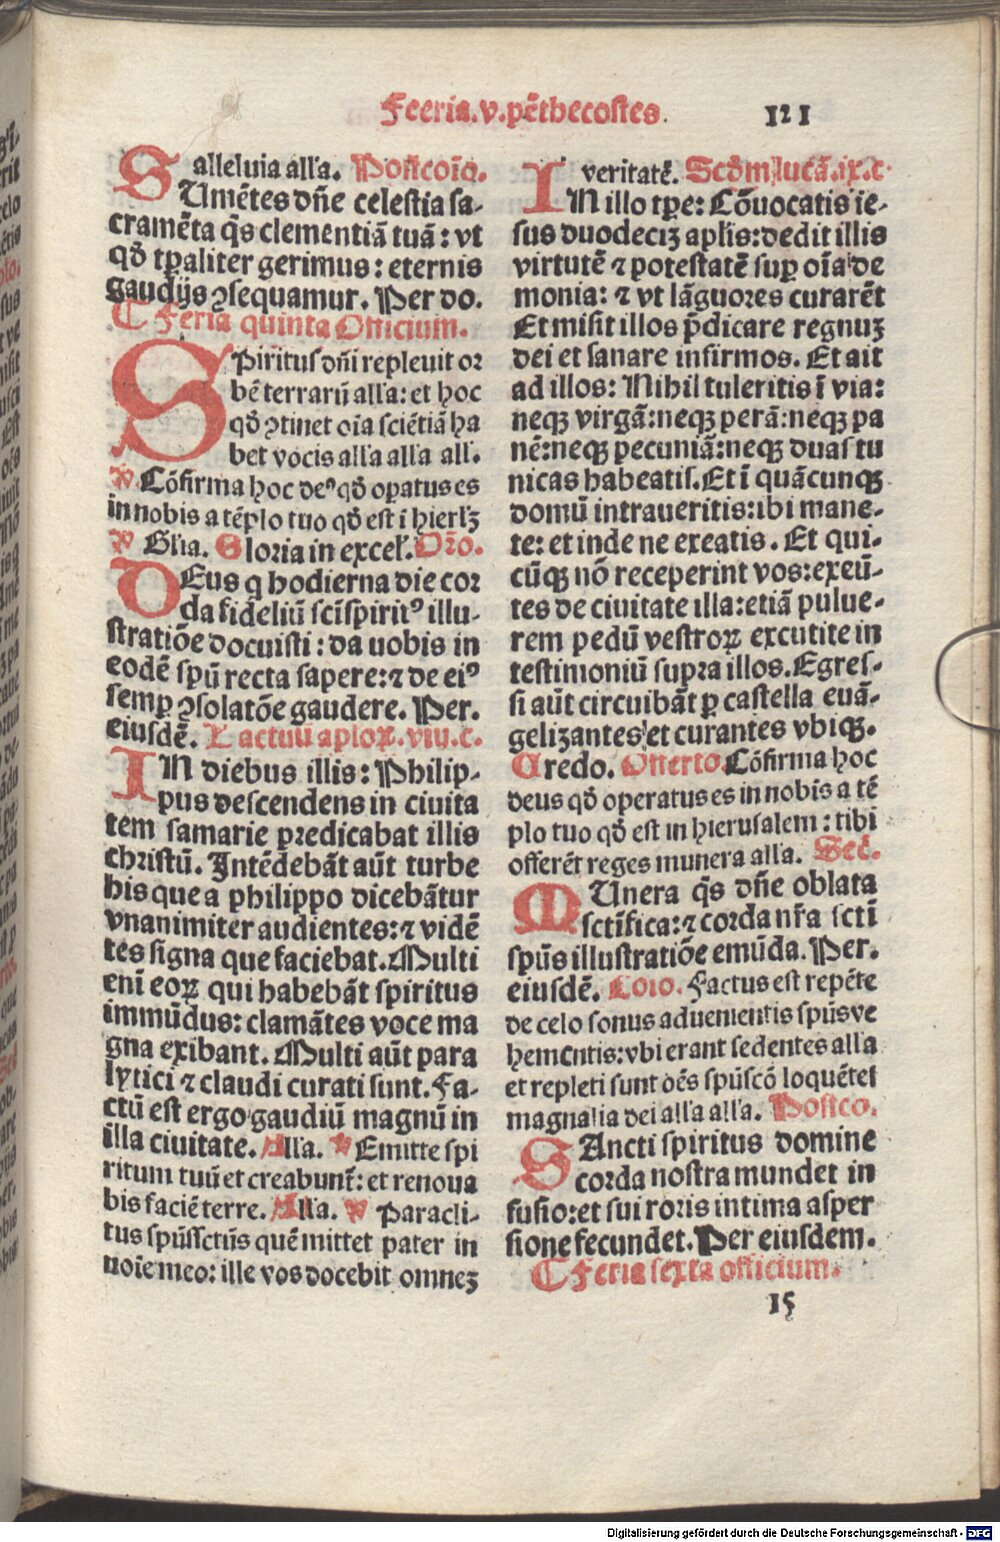 Feeria.v.pēthecostes. 121
alleluia alľa. Postcoīo.
SUmētes dn̄e celestia sa-
cramēta q̄s clementiā tuā: vt
qđ tꝑaliter gerimus: eternis
gaudijs ꝯsequamur. Per do.
¶ Feria quinta Officium.
SPiritus dn̄i repleuit or
bē terrarū alľa: et hoc
qđ ꝯtinet oīa sciētiā ha
bet vocis alľa alľa all.
℣. Cōfirma hoc deꝰ qđ oꝑatus es
in nobis a tēplo tuo qđ est ī hierlꝫ
℣ Glīa. Gloria in excel̛. Or̄o.
DEus q hodierna die cor
da fideliū sc̄i spiritꝰ illu-
stratiōe docuisti: da nobis in
eodē spū recta sapere: ⁊ de eiꝰ
semꝑ ꝯsolatōe gaudere. Per.
eiusdē. Lactuū aploꝝ.viij.c.
IN diebus illis: Philip-
pus descendens in ciuita
tem samarie predicabat illis
christū. Intēdebāt aūt turbe
his que a philippo dicebātur
vnanimiter audientes: ⁊ vidē
tes signa que faciebat. Multi
enī eoꝝ qui habebāt spiritus
immūdus: clamātes voce ma
gna exibant. Multi aūt para
lytici ⁊ claudi curati sunt. Fa-
ctū est ergo gaudiū magnū in
illa ciuitate. Alľa. ℣ Emitte spi
ritum tuū et creabunt̄: et renoua
bis faciē terre. Alľa. ℣ Paracli-
tus spūssctūs quē mittet pater in
noie meo: ille vos docebit omneꝫ
veritatē. Scđm lucā.ix.c.
IN illo tꝑe: Cōuocatis ie-
sus duodeciꝫ aplis: dedit illis
virtutē ⁊ potestatē suꝑ oīa de
monia: ⁊ vt lāguores curarēt
Et misit illos p̄dicare regnuꝫ
dei et sanare infirmos. Et ait
ad illos: Nihil tuleritis ī via:
neqꝫ virgā: neqꝫ perā: neqꝫ pa
nē: neqꝫ pecuniā: neqꝫ duas tu
nicas habeatis. Et ī quācunqꝫ
domū intraueritis: ibi mane-
te: et inde ne exeatis. Et qui-
cūqꝫ nō receperint vos: exeū-
tes de ciuitate illa: etiā pulue-
rem pedū vestroꝝ excutite in
testimoniū supra illos. Egres-
si aūt circuibāt ꝑ castella euā-
gelizantes et curantes vbiqꝫ.
Credo. Offerto. Cōfirma hoc
deus qđ operatus es in nobis a tē
plo tuo qđ est in hierusalem: tibi
offerēt reges munera alľa. Sec̄.
MUnera q̄s dn̄e oblata
sctīfica: ⁊ corda nr̄a sctī
spūs illustratiōe emūda. Per.
eiusdē. Cōio. Factus est repēte
de celo sonus aduenientis spūs ve
hementis: vbi erant sedentes alľa
et repleti sunt oēs spūscō loquētes
magnalia dei alľa alľa. Postco.
SAncti spiritus domine
corda nostra mundet in
fusio: et sui roris intima asper
sione fecundet. Per eiusdem.
¶ Feria sexta officium.
15
Digitalisierung gefördert durch die Deutsche Forschungsgemeinschaft - DFG